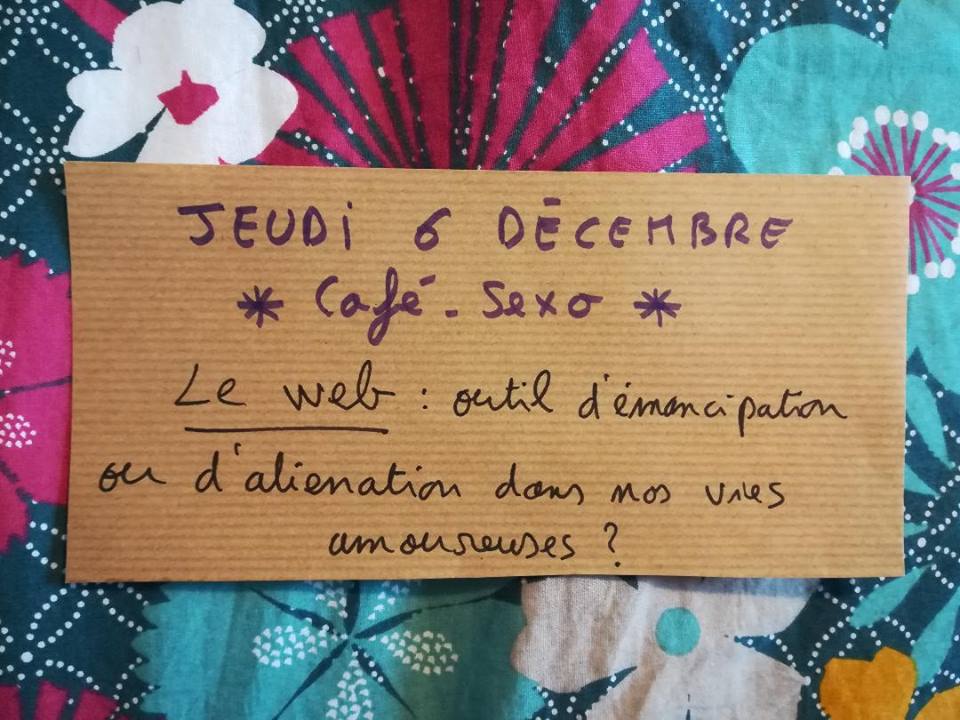 JEUDi 6 DÉCEMBRE
* Café - Sexo *
Le web : outil d'émancipation
ou d'alienation dans nos vies
amoureuses ?